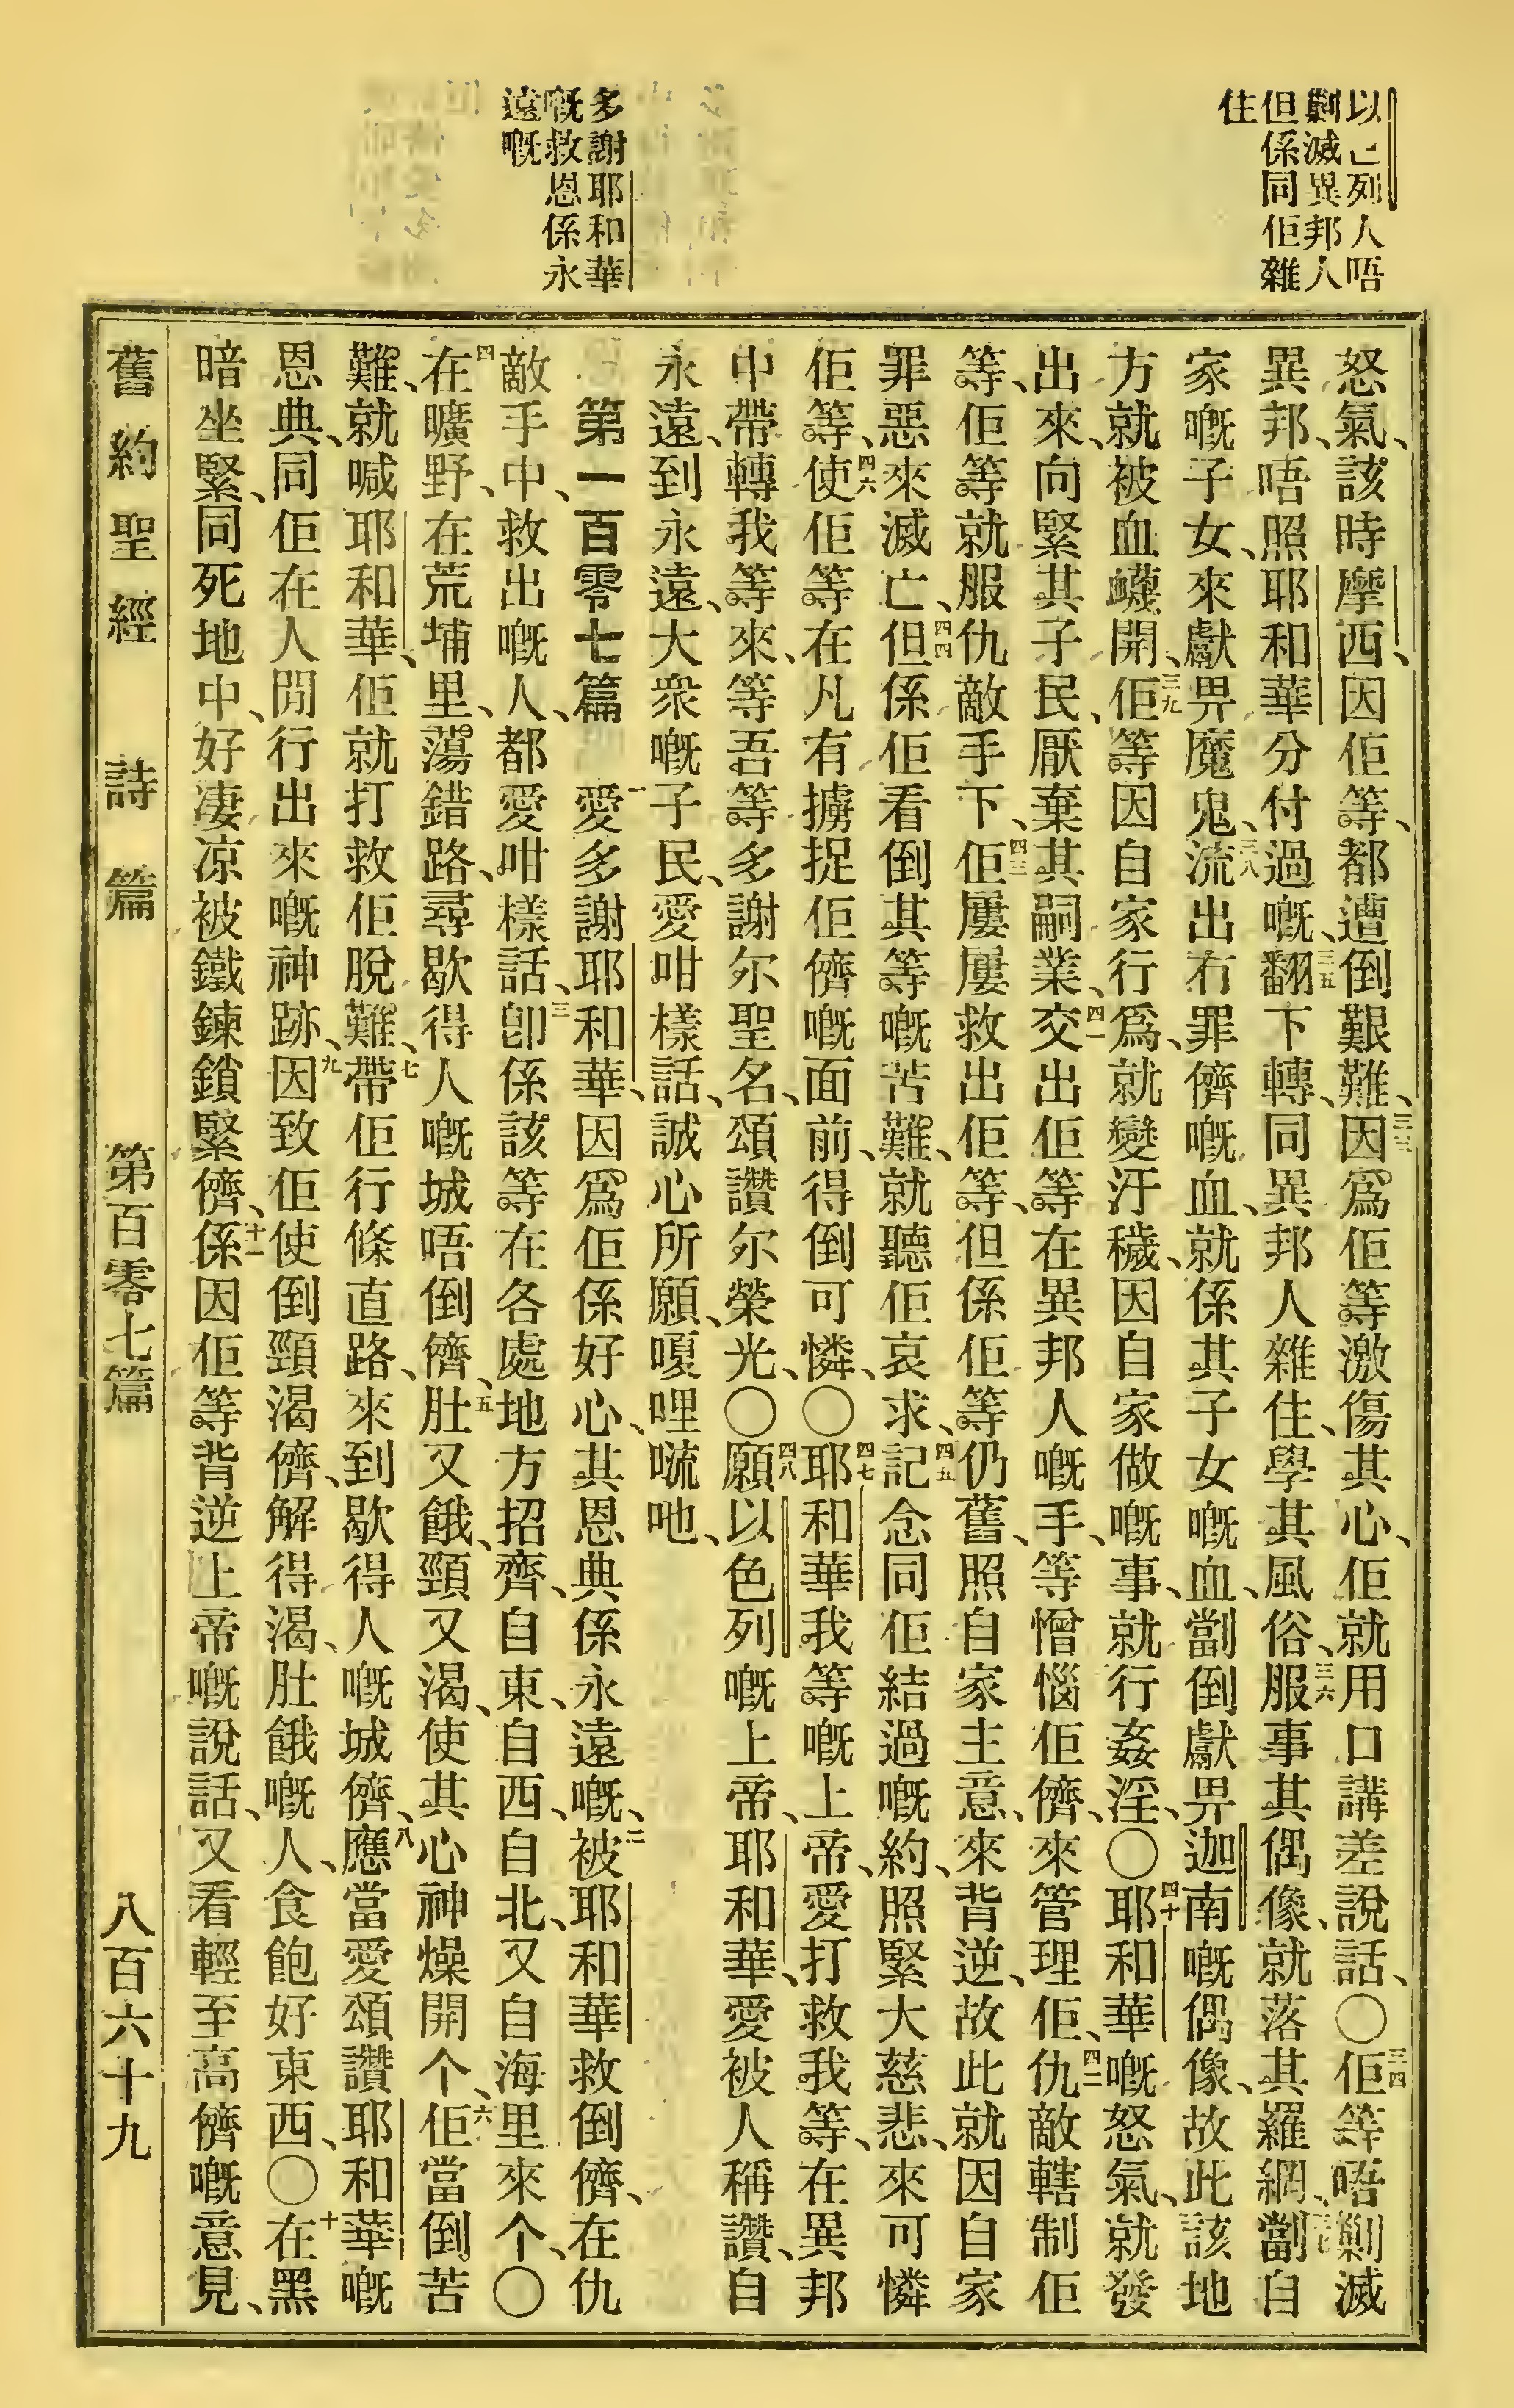 以色列人唔
剿滅異邦人
但係同佢雜
住
多謝耶和華
嘅救恩係永
遠嘅
怒氣、該時摩西、因佢等、都遭倒艱難、三三因爲佢等激傷其心、佢就用口講差說話、〇三四佢等唔剿滅
異邦、唔照耶和華分付過嘅、三五翻下轉、同異邦人雜住、學其風俗、三六服事其偶像、就落其羅網、三七劏自
家嘅子女、來獻畀魔鬼、三八流出冇罪儕嘅血、就係其子女嘅血、劏倒獻畀迦南嘅偶像、故此該地
方就被血衊開、三九佢等因自家行爲、就變汙穢、因自家做嘅事、就行姦淫、〇四十耶和華嘅怒氣、就發
出來、向緊其子民、厭棄其嗣業、四一交出佢等在異邦人嘅手、等憎惱佢儕、來管理佢、四二仇敵轄制佢
等、佢等就服仇敵手下、四三佢屢屢救出佢等、但係佢等仍舊、照自家主意、來背逆、故此就因自家
罪惡來滅亡、四四但係佢看倒其等嘅苦難、就聽佢哀求、四五記念同佢結過嘅約、照緊大慈悲、來可憐
佢等、四六使佢等在凡有擄捉佢儕嘅面前、得倒可憐、〇四七耶和華我等嘅上帝、愛打救我等、在異邦
中帶轉我等來、等吾等多謝尔聖名、頌讚尔榮光、〇四八願以色列嘅上帝、耶和華、愛被人稱讚、自
永遠、到永遠、大衆嘅子民、愛咁樣話、誠心所願、嗄哩㗭吔、
第一百零七篇 一愛多謝耶和華、因爲佢係好心、其恩典係永遠嘅、二被耶和華救倒儕、在仇
敵手中、救出嘅人、都愛咁樣話、三卽係該等在各處地方招齊、自東、自西、自北、又自海里來个、〇
四在曠野、在荒埔里、蕩錯路、尋歇得人嘅城唔倒儕、五肚又餓、頸又渴、使其心神燥開个、六佢當倒苦
難、就喊耶和華、佢就打救佢脫難、七帶佢行條直路、來到歇得人嘅城儕、八應當愛頌讚耶和華嘅
恩典、同佢在人間行出來嘅神跡、九因致佢使倒頸渴儕、解得渴、肚餓嘅人、食飽好東西、〇十在黑
暗坐緊、同死地中、好凄凉被鐵鍊鎖緊儕、十一係因佢等背逆上帝嘅說話、又看輕至高儕嘅意見、
舊約聖經 詩篇 第百零七篇 八百六十九